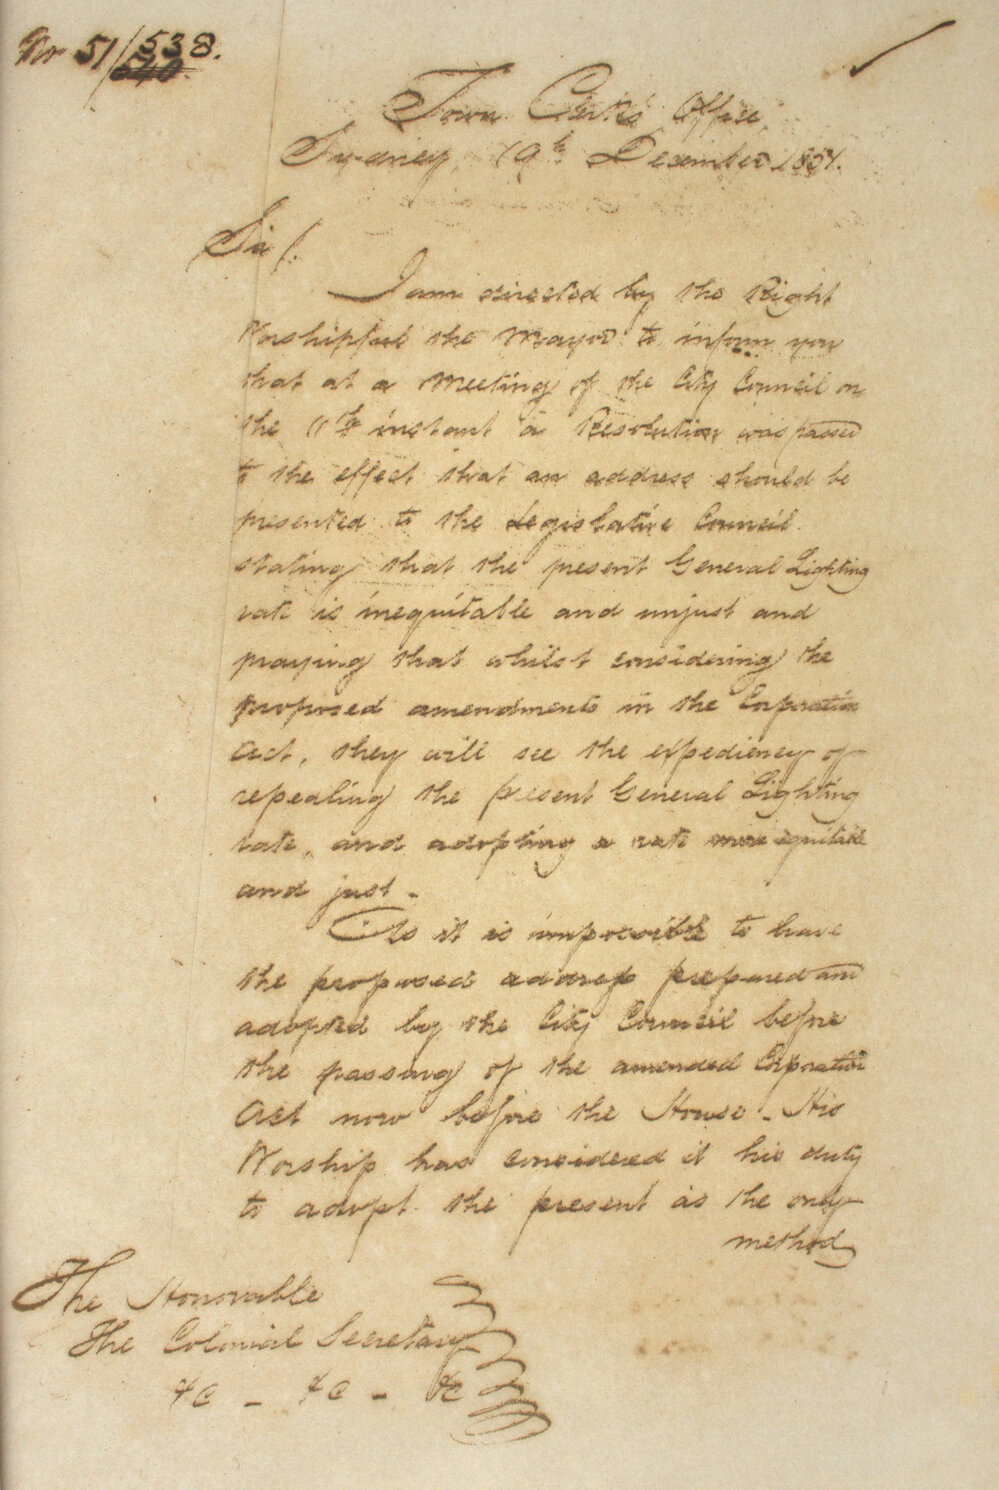 No 51/538.
640
Town Clerk's Office
Sydney, 19th December 1851.
Sir/.
I am directed by the Right
Worshipful the Mayor to inform you
that at a Meeting of the City Council on
the 11th instant a Resolution was passed
to the effect that an address should be
presented to the Legislative Council
stating that the present General Lighting
rate is inequitable and unjust and
praying that whilst considering the
proposed amendments in the Corporation
Act, they will see the expediency of
repealing the present General Lighting
rate, and adopting a rate more equitable
and just.
As it is impossible to have
the proposed address prepared and
adopted by the City Council before
the passing of the amended Corporation
Act now before the House - His
Worship has considered it his duty
to adopt the present as the only
method
The Honorable
The Colonial Secretary
&c - &c - &c